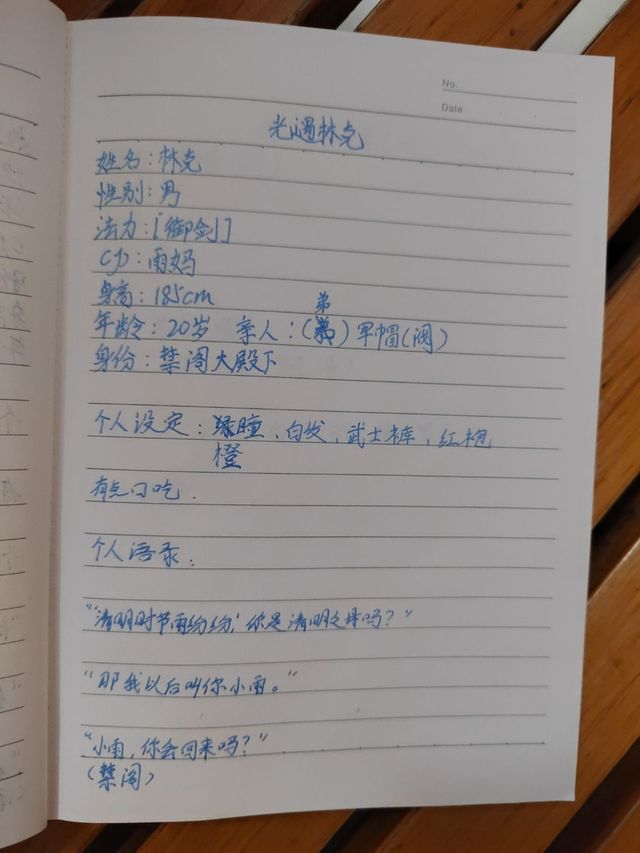 No.
Date
光遇林克
姓名：林克
性别：男
法力：[御剑]
CP：雨妈
身高：185cm
弟
年龄：20岁 亲人：（）军帽（阀）
身份：禁阁大殿下
个人设定：绿瞳、白发，武士裤，红袍
橙
有点口吃．
个人语录：
"清明时节雨纷纷，你是清明之母吗？"
"那我以后叫你小雨。"
"小雨，你会回来吗？"
（禁阁）